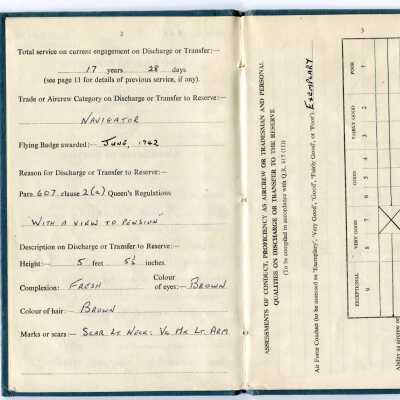 2
Total service on current engagement on Discharge or Transfer:—
17 years 28 days
(see page 11 for details of previous service, if any).
Trade or Aircrew Category on Discharge or Transfer to Reserve:—
NAVIGATOR
Flying Badge awarded:— JUNE, 1942
Reason for Discharge or Transfer to Reserve:—
Para. 607. clause 2(a) Queen's Regulations
"WITH A VIEW TO PENSION"
Description on Discharge or Transfer to Reserve:—
Height:— 5 feet 5½ inches.
Complexion: FRESH Colour of eyes:— BROWN
Colour of hair:— BROWN
Marks or scars:— SCAR LT NECK: VC MK LT ARM
3
ASSESSMENTS OF CONDUCT, PROFICIENCY AS AIRCREW OR TRADESMAN AND PERSONAL
QUALITIES ON DISCHARGE OR TRANSFER TO THE RESERVE
(To be compiled in accordance with Q.R.
Air Force Conduct (to be assessed as 'Exemplary', 'Very Good', 'Good', 'Fair', or 'Poor') EXEMPLARY
EXCEPTIONAL
VERY GOOD
GOOD
FAIRLY GOOD
POOR
9
8
7
6
5
4
3
2
1